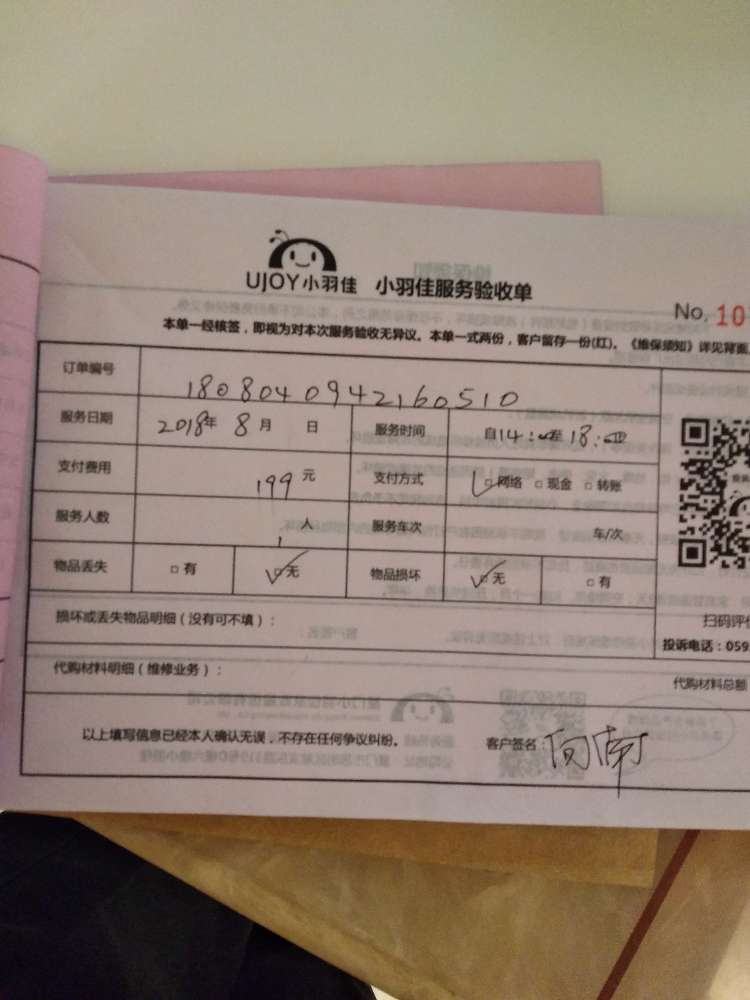 UJOY小羽佳 小羽佳服务验收单
No. 10
本单一经核签，即视为对本次服务验收无异议。本单一式两份，客户留存一份(红)。《维保须知》详见背面
订单编号 1808040942160510
服务日期 2018年 8月 日 服务时间 自14:00至18:00
支付费用 199元 支付方式 ☑网络 □现金 □转账
服务人数 1人 服务车次 车/次
物品丢失 □有 ☑无 物品损坏 ☑无 □有
损坏或丢失物品明细（没有可不填）：
扫码评价
投诉电话：059
代购材料明细（维修业务）：
代购材料总额
以上填写信息已经本人确认无误，不存在任何争议纠纷。 客户签名：向南